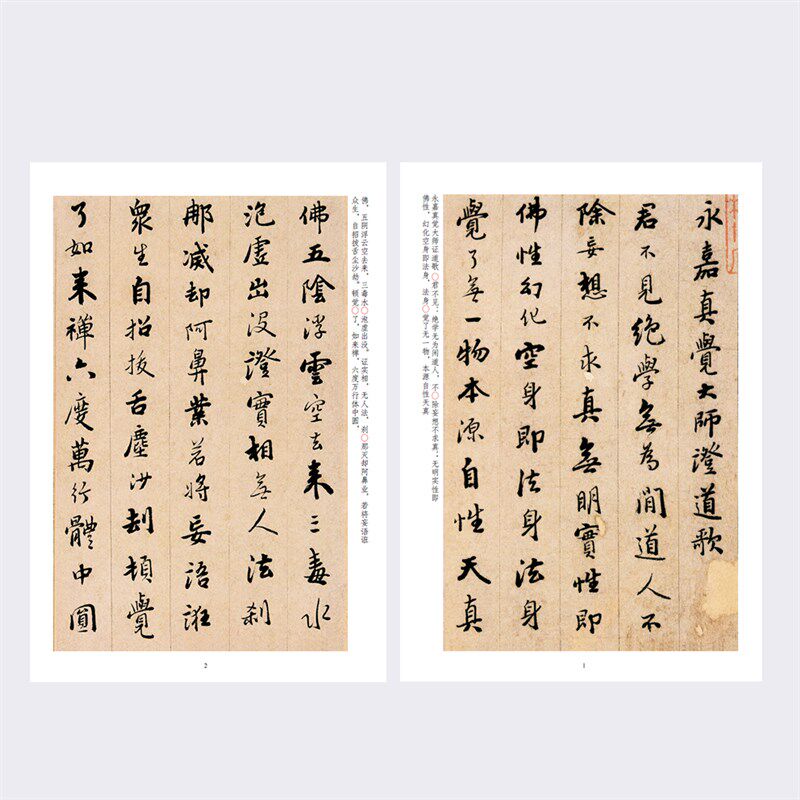 永嘉真覺大師澄道歌
君不見絕學無為閒道人不
除妄想不求真無明實性即
佛性幻化空身即法身法身
覺了無一物本源自性天真
永嘉真觉大师证道歌〇君不见：绝学无为闲道人，不〇除妄想不求真；无明实性即
佛性，幻化空身即法身，法身〇觉了无一物，本源自性天真
1
佛，五阴浮云空去来，三毒水〇泡虚出没。证实相，无人法，刹〇那灭却阿鼻业。若将妄语诳
众生，自招拔舌尘沙劫。顿觉〇了，如来禅，六度万行体中圆。
佛五陰浮雲空去来三毒水
泡虛出没澄實相無人法剎
那滅却阿鼻業若將妄語誑
眾生自招拔舌塵沙劫頓覺
了如来禪六度萬行體中圓
2